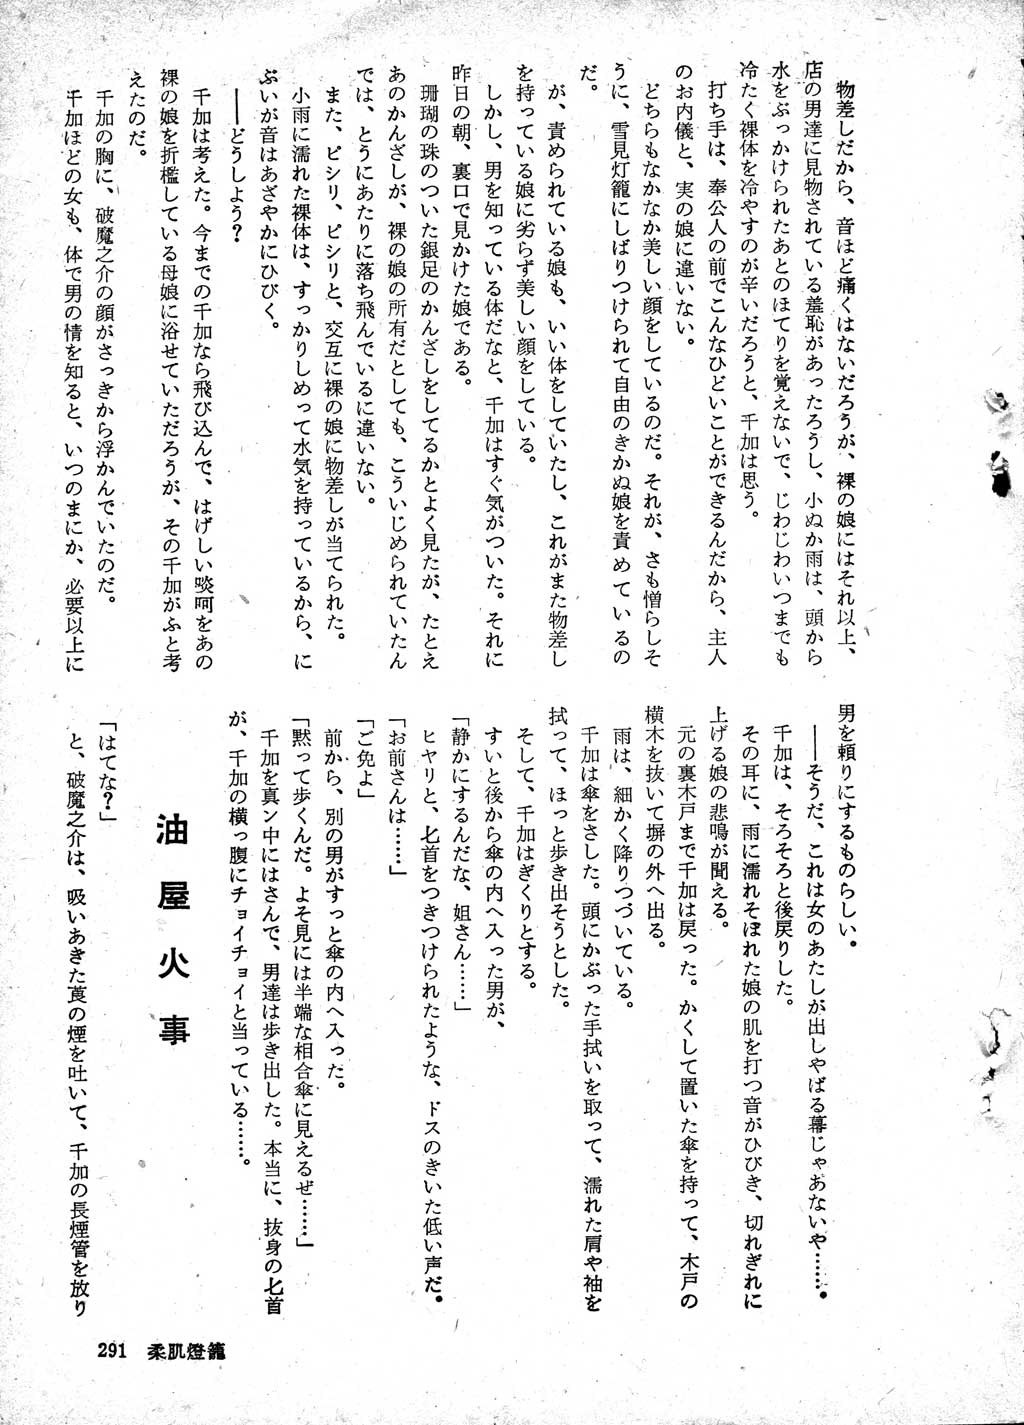 物差しだから、音ほど痛くはないだろうが、裸の娘にはそれ以上、
店の男達に見物されている羞恥があったろうし、小ぬか雨は、頭から
水をぶっかけられたあとのほてりを覚えないで、じわじわいつまでも
冷たく裸体を冷やすのが辛いだろうと、千加は思う。
打ち手は、奉公人の前でこんなひどいことができるんだから、主人
のお内儀と、実の娘に違いない。
どちらもなかなか美しい顔をしているのだ。それが、さも憎らしそ
うに、雪見灯籠にしばりつけられて自由のきかぬ娘を責めているの
だ。
が、責められている娘も、いい体をしていたし、これがまた物差し
を持っている娘に劣らず美しい顔をしている。
しかし、男を知っている体だなと、千加はすぐ気がついた。それに
昨日の朝、裏口で見かけた娘である。
珊瑚の珠のついた銀足のかんざしをしてるかとよく見たが、たとえ
あのかんざしが、裸の娘の所有だとしても、こういじめられていたん
では、とうにあたりに落ち飛んでいるに違いない。
また、ピシリ、ピシリと、交互に裸の娘に物差しが当てられた。
小雨に濡れた裸体は、すっかりしめって水気を持っているから、に
ぶいが音はあざやかにひびく。
――どうしよう?
千加は考えた。今までの千加なら飛び込んで、はげしい啖呵をあの
裸の娘を折檻している母娘に浴せていただろうが、その千加がふと考
えたのだ。
千加の胸に、破魔之介の顔がさっきから浮かんでいたのだ。
千加ほどの女も、体で男の情を知ると、いつのまにか、必要以上に
男を頼りにするものらしい。
――そうだ、これは女のあたしが出しゃばる幕じゃあないや……。
千加は、そろそろと後戻りした。
その耳に、雨に濡れそぼれた娘の肌を打つ音がひびき、切れぎれに
上げる娘の悲鳴が聞える。
元の裏木戸まで千加は戻った。かくして置いた傘を持って、木戸の
横木を抜いて塀の外へ出る。
雨は、細かく降りつづいている。
千加は傘をさした。頭にかぶった手拭いを取って、濡れた肩や袖を
拭って、ほっと歩き出そうとした。
そして、千加はぎくりとする。
すいと後から傘の内へ入った男が、
「静かにするんだな、姐さん……」
ヒヤリと、匕首をつきつけられたような、ドスのきいた低い声だ。
「お前さんは……」
「ご免よ」
前から、別の男がすっと傘の内へ入った。
「黙って歩くんだ。よそ見には半端な相合傘に見えるぜ……」
千加を真ン中にはさんで、男達は歩き出した。本当に、抜身の匕首
が、千加の横っ腹にチョイチョイと当っている……。
油屋火事
「はてな?」
と、破魔之介は、吸いあきた莨の煙を吐いて、千加の長煙管を放り
291 柔肌燈籠